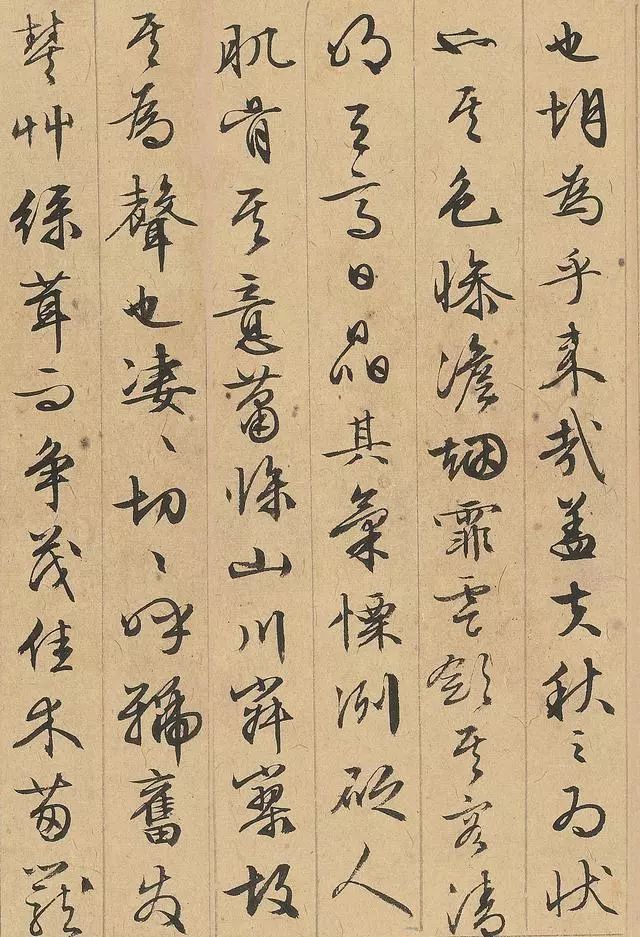 也胡為乎来哉蓋夫秋之為状
也其色慘澹烟霏雲斂其容清
明天高日晶其氣慄冽砭人
肌骨其意蕭條山川寂寥故
其為聲也淒〻切〻呼號奮發
豐草綠茸而争茂佳木葱蘢